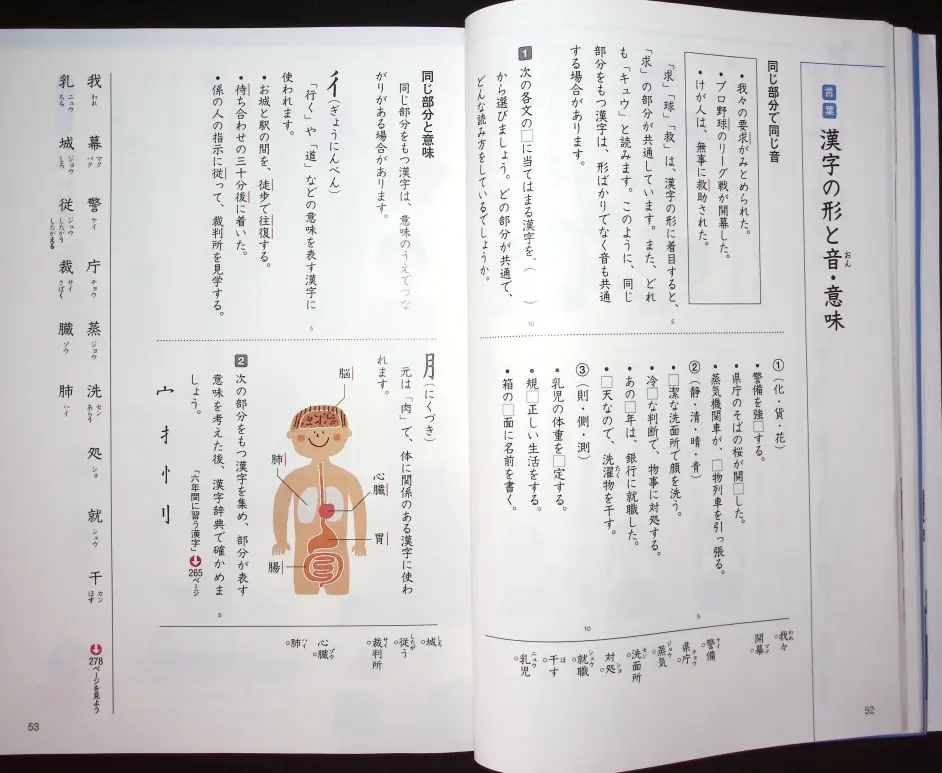 言葉
漢字の形と音・意味
おん
同じ部分で同じ音
・我々の要求がみとめられた。
・プロ野球のリーグ戦が開幕した。
・けが人は、無事に救助された。
「求」「球」「救」は、漢字の形に着目すると、
「求」の部分が共通しています。また、どれ
も「キュウ」と読みます。このように、同じ
部分をもつ漢字は、形ばかりでなく音も共通
する場合があります。
5
1 次の各文の□に当てはまる漢字を、（　）
から選びましょう。どの部分が共通で、
どんな読み方をしているでしょうか。
10
①（化・貨・花）
・警備を強□する。
・県庁のそばの桜が開□した。
・蒸気機関車が、□物列車を引っ張る。
②（静・清・晴・青）
・□潔な洗面所で顔を洗う。
・冷□な判断で、物事に対処する。
・あの□年は、銀行に就職した。
・□天なので、洗濯物を干す。
たく
③（則・側・測）
・乳児の体重を□定する。
・規□正しい生活をする。
・箱の□面に名前を書く。
5
10
我々 われ
開幕 マク
警備 ケイ
県庁 チョウ
蒸気 ジョウ
洗面所 セン
対処 ショ
就職 シュウ
干す ほ
乳児 ニュウ
52
同じ部分と意味
同じ部分をもつ漢字は、意味のうえでつな
がりがある場合があります。
彳（ぎょうにんべん）
「行く」や「道」などの意味を表す漢字に
使われます。
・お城と駅の間を、徒歩で往復する。
・待ち合わせの三十分後に着いた。
・係の人の指示に従って、裁判所を見学する。
5
月（にくづき）
元は「肉」で、体に関係のある漢字に使わ
れます。
脳
肺
心臓
胃
腸
2 次の部分をもつ漢字を集め、部分が表す
意味を考えた後、漢字辞典で確かめま
しょう。
「六年間に習う漢字」265ページ
宀 扌 忄 刂
5
城 しろ
従う したが
裁判所 サイ
心臓 ゾウ
肺 ハイ
我 われ
幕 マク バク
警 ケイ
庁 チョウ
蒸 ジョウ
洗 セン あらう
処 ショ
就 シュウ
干 カン ほす
278ページを見よう
乳 ニュウ ちち
城 ジョウ しろ
従 ジュウ したがう したがえる
裁 サイ さばく
臓 ゾウ
肺 ハイ
53